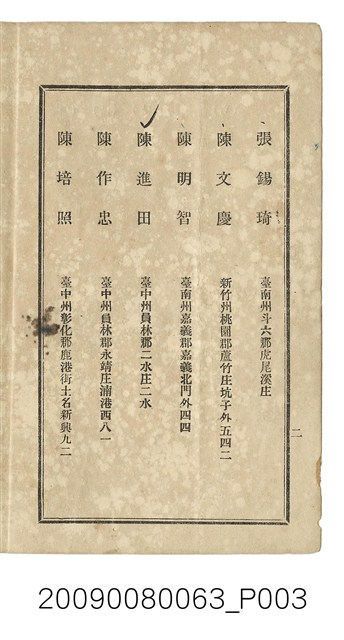 張錫琦 臺南州斗六郡虎尾溪庄
陳文慶 新竹州桃園郡蘆竹庄坑子外五四二
陳明智 臺南州嘉義郡嘉義北門外四四
陳進田 臺中州員林郡二水庄二水
陳作忠 臺中州員林郡永靖庄湳港西八一
陳培照 臺中州彰化郡鹿港街土名新興九二
二
20090080063_P003